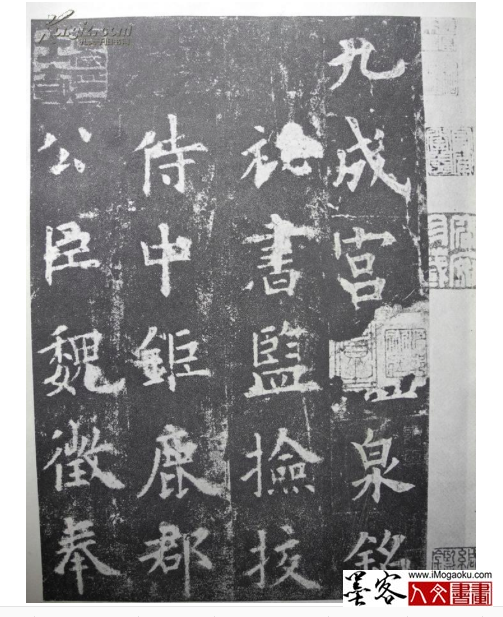 九成宮泉銘
祕書監撿挍
侍中鉅鹿郡
公臣魏徵奉
www.iMogaoku.com
墨客